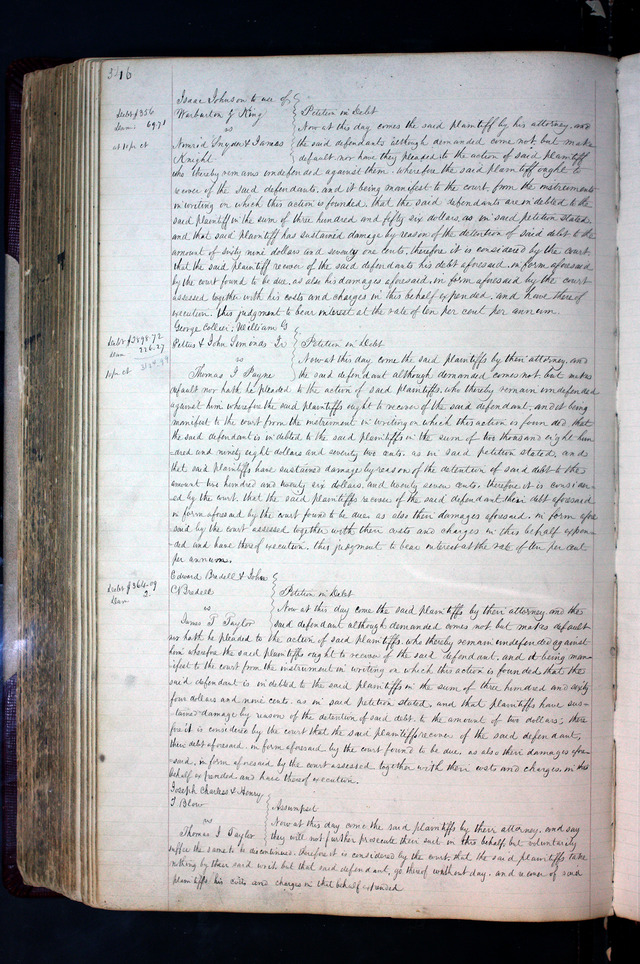 3416
Isaac Johnson to use of
Debt $356 Warburton & King Petition in Debt
Dam. 69.71 vs Now at this day comes the said plaintiff by his attorney, and
at 10 pr ct Snyder & James the said defendants although demanded come not but make
Knight default nor have they pleaded to the action of said plaintiff
who thereby remains undefended against them, wherefore the said plaintiff ought to
recover of the said defendants, and it being manifest to the court from the instruments
in writing on which this action is founded, that the said defendants are indebted to the
said plaintiff in the sum of three hundred and fifty six dollars, as in said petition stated
and that said plaintiff has sustained damage by reason of the detention of said debt to the
amount of sixty nine dollars and seventy one cents, therefore it is considered by the court
that the said plaintiff recover of the said defendants his debt aforesaid, in form aforesaid
by the court found to be due, as also his damages aforesaid, in form aforesaid by the court
assessed together with his costs and charges in this behalf expended, and have thereof
execution. This judgment to bear interest at the rate of ten per cent per annum.
George Collier, William G
Debt $2898.72 Pettus & John Simonds Jr Petition in Debt
Dam 226.27 vs Now at this day, come the said plaintiffs by their attorney, and
10 pr ct Thomas J Payne the said defendant although demanded comes not but makes
default nor hath he pleaded to the action of said plaintiffs, who thereby remain undefended
against him wherefore the said plaintiffs ought to recover of the said defendant, and it being
manifest to the court from the instrument in writing on which this action is founded that
the said defendant is indebted to the said plaintiffs in the sum of two thousand eight hun
dred and ninety eight dollars and seventy two cents. as in said petition stated, and
that said plaintiffs have sustained damage by reason of the detention of said debt to the
amount two hundred and twenty six dollars. and twenty seven cents, therefore it is consider-
ed by the court, that the said plaintiffs recover of the said defendant their debt aforesaid
in form aforesaid by the court found to be due, as also their damages aforesaid, in form afore
said by the court assessed together with their costs and charges in this behalf expen-
ded and have thereof execution, this judgment to bear interest at the rate of ten per cent
per annum.
Edward Bredell & John
Debt $364.09 C Bredell Petition in Debt
Dam 2. vs Now at this day come the said plaintiffs by their attorney, and the
James T Taylor said defendant although demanded comes not but makes default
nor hath he pleaded to the action of said plaintiffs, who thereby remain undefended against
him wherefore the said plaintiffs ought to recover of the said defendant, and it being man-
ifest to the court from the instrument in writing on which this action is founded that the
said defendant is indebted to the said plaintiffs in the sum of three hundred and sixty
four dollars and nine cents, as in said petition stated, and that plaintiffs have sus-
-tained damage by reason of the detention of said debt, to the amount of two dollars, there
fore it is considered by the court that the said plaintiffs recover of the said defendant,
their debt aforesaid in form aforesaid by the court found to be due, as also their damages afore-
said, in form aforesaid by the court assessed together with their costs and charges, in this
behalf expended and have thereof execution.
Joseph Charless & Henry
T. Blow Assumpsit
vs Now at this day come the said plaintiffs by their attorney, and say
Thomas J Taylor they will not further prosecute their suit in this behalf, but voluntarily
suffer the same to be discontinued, therefore it is considered by the court, that the said plaintiffs take
nothing by their said writ, but that said defendant, go thereof without day, and recover of said
plaintiffs his costs and charges in that behalf expended